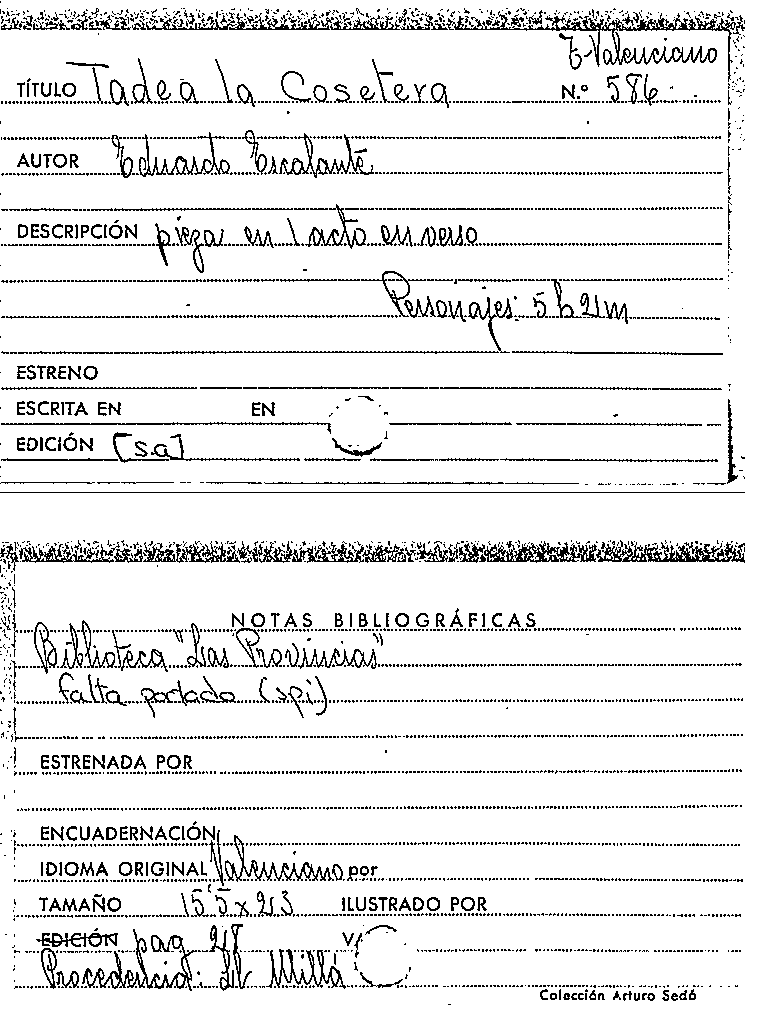 T-Valenciano
TÍTULO Tadea la Cosetera N.º 586
AUTOR Eduardo Escalante
DESCRIPCIÓN pieza en 1 acto en verso
Personajes: 5 h 2 m
ESTRENO
ESCRITA EN EN
EDICIÓN [s.a]
NOTAS BIBLIOGRÁFICAS
Biblioteca "Las Provincias"
falta portada (spi)
ESTRENADA POR
ENCUADERNACIÓN
IDIOMA ORIGINAL Valenciano por
TAMAÑO 15'5 x 213 ILUSTRADO POR
EDICIÓN pag 28 V
Procedencia: Ll Millá
Colección Arturo Sedó